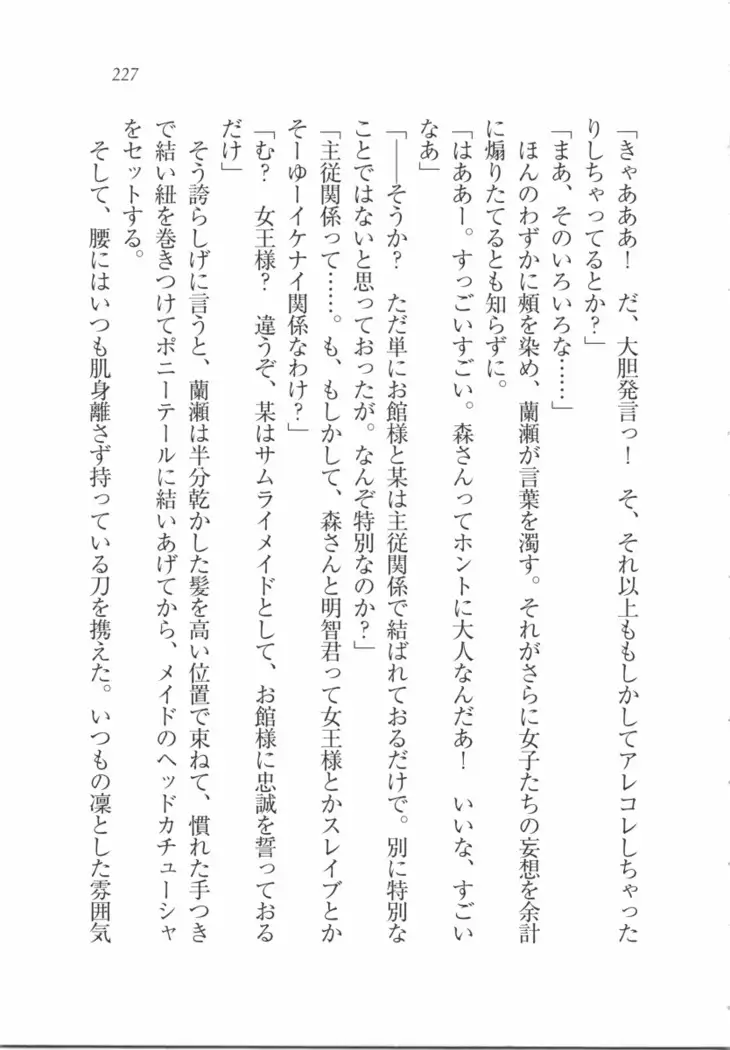 227
「きゃあああ！　だ、大胆発言っ！　そ、それ以上ももしかしてアレコレしちゃった
りしちゃってるとか？」
「まあ、そのいろいろな……」
ほんのわずかに頰を染め、蘭瀬が言葉を濁す。それがさらに女子たちの妄想を余計
に煽りたてるとも知らずに。
「はああー。すっごいすごい。森さんってホントに大人なんだあ！　いいな、すごい
なあ」
「――そうか？　ただ単にお館様と某は主従関係で結ばれておるだけで。別に特別な
ことではないと思っておったが。なんぞ特別なのか？」
「主従関係って……。も、もしかして、森さんと明智君って女王様とかスレイブとか
そーゆーイケナイ関係なわけ？」
「む？　女王様？　違うぞ、某はサムライメイドとして、お館様に忠誠を誓っておる
だけ」
そう誇らしげに言うと、蘭瀬は半分乾かした髪を高い位置で束ねて、慣れた手つき
で結い紐を巻きつけてポニーテールに結いあげてから、メイドのヘッドカチューシャ
をセットする。
そして、腰にはいつも肌身離さず持っている刀を携えた。いつもの凜とした雰囲気